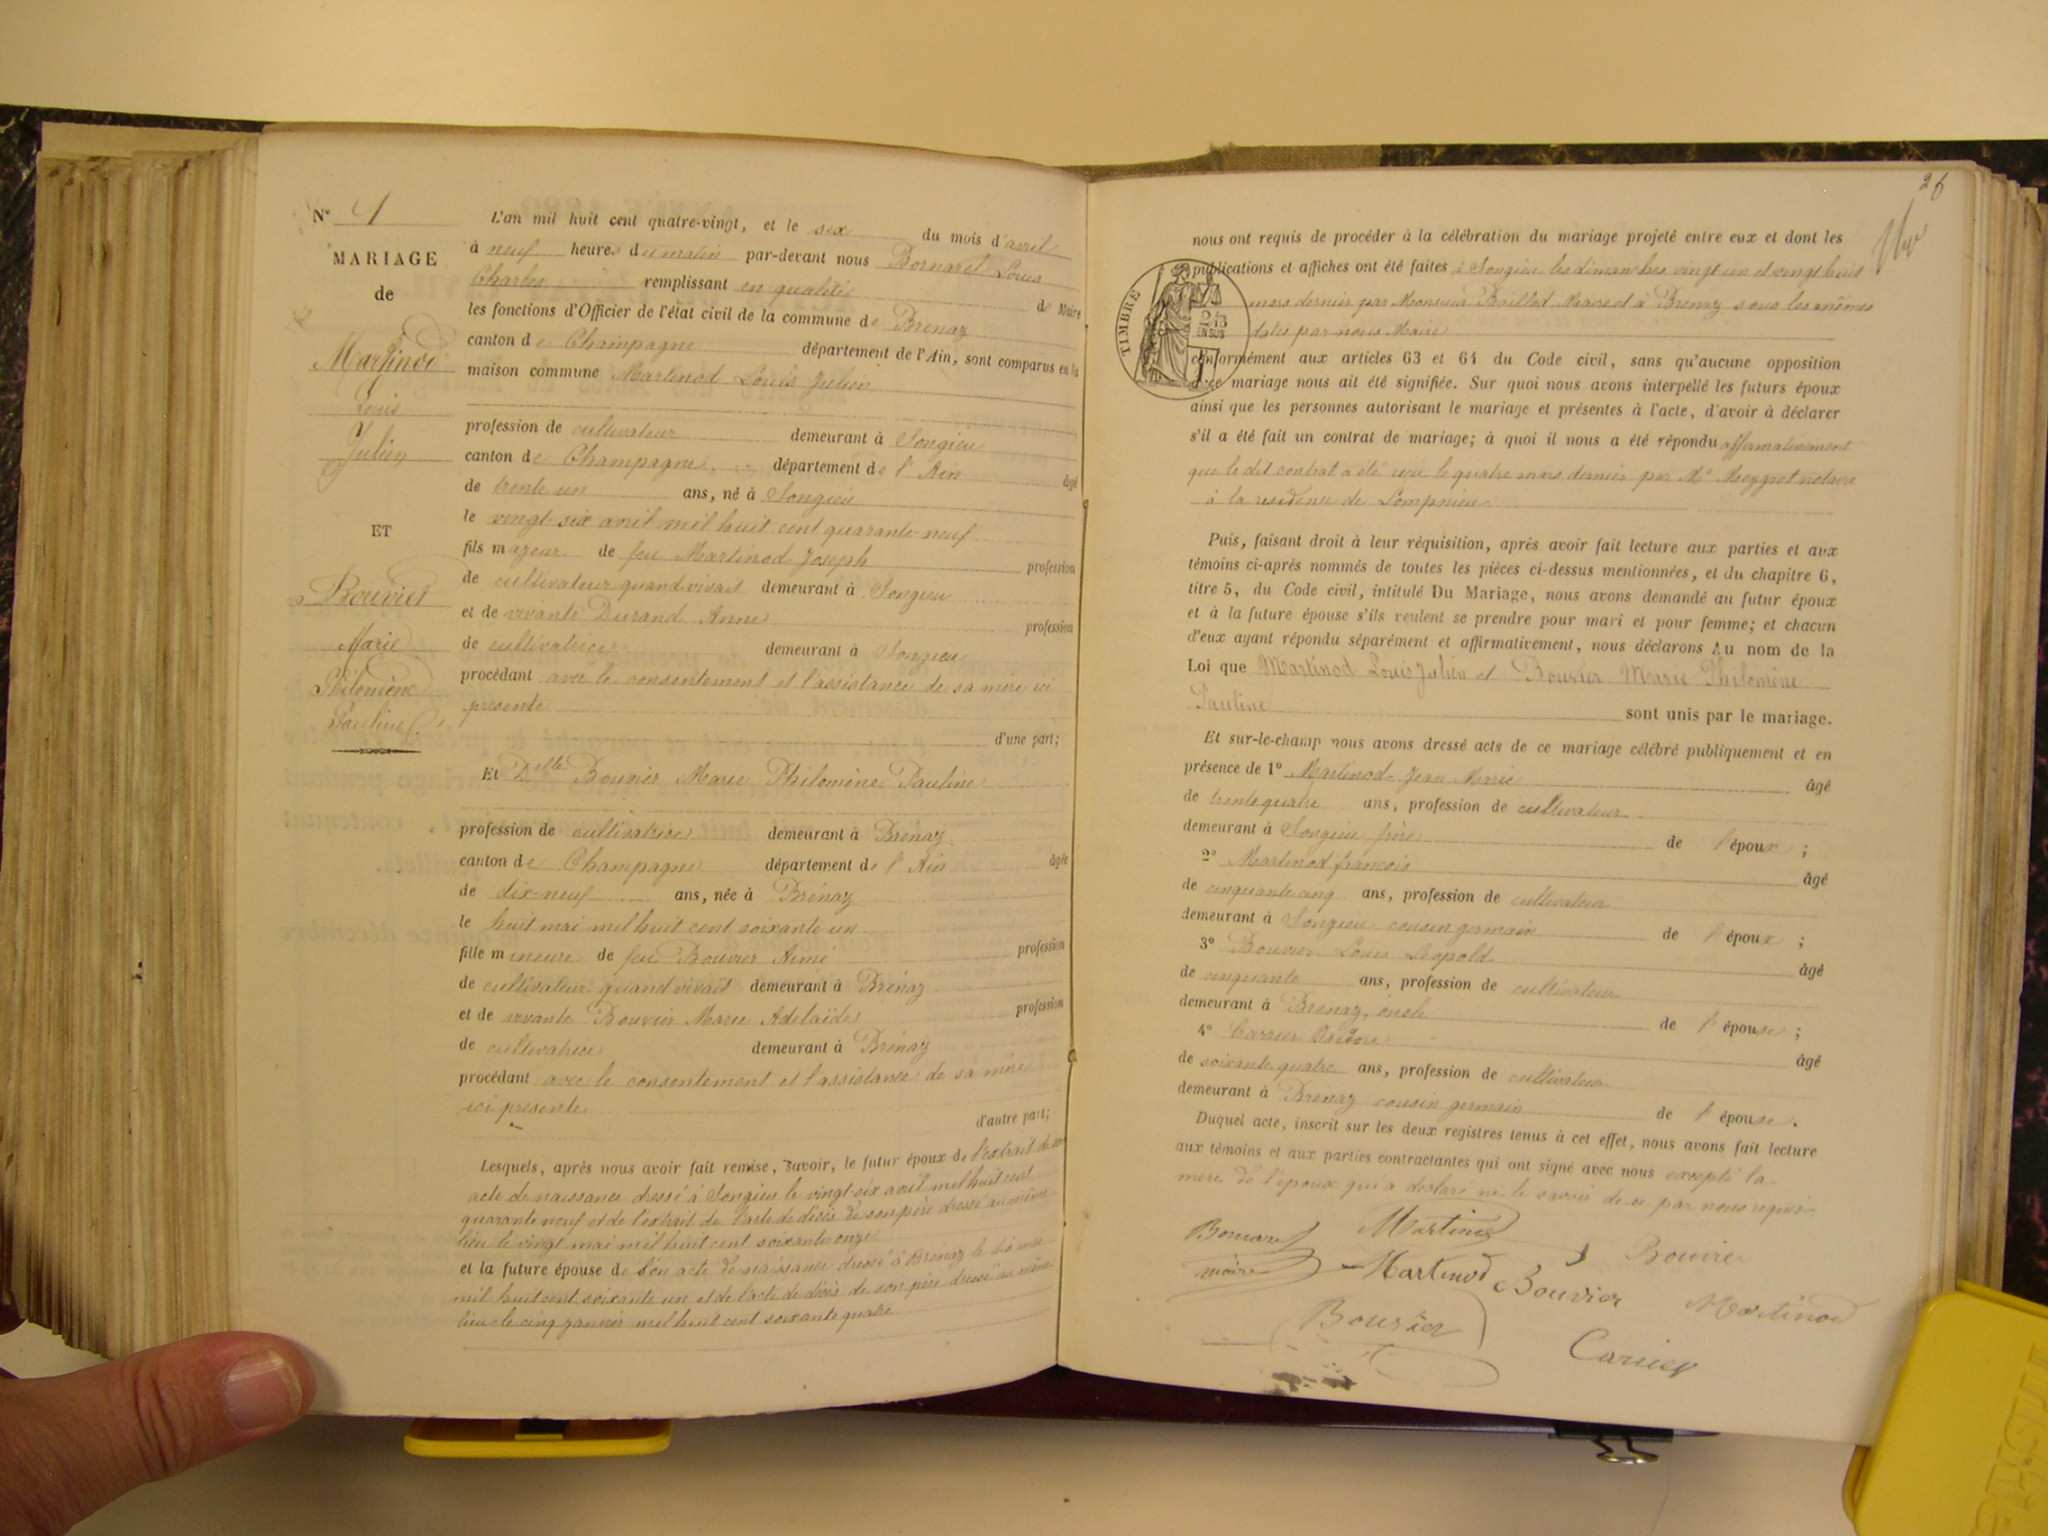 N° 1
MARIAGE
de
Martinod
Louis
Julien
ET
Bouvier
Marie
Philomène
Pauline
L'an mil huit cent quatre-vingt, et le six du mois d'avril
à neuf heures du matin par-devant nous Bornarel Louis
Charles remplissant en qualité de Maire
les fonctions d'Officier de l'état civil de la commune de Brenaz
canton de Champagne département de l'Ain, sont comparus en la
maison commune Martinod Louis Julien
profession de cultivateur demeurant à Songieu
canton de Champagne département de l'Ain âgé
de trente un ans, né à Songieu
le vingt-six avril mil huit cent quarante-neuf
fils majeur de feu Martinod Joseph profession
de cultivateur quand vivait demeurant à Songieu
et de vivante Durand Anne profession
de cultivatrice demeurant à Songieu
procédant avec le consentement et l'assistance de sa mère ici
présente
d'une part;
Et Delle Bouvier Marie Philomène Pauline
profession de cultivatrice demeurant à Brénaz
canton de Champagne département de l'Ain âgée
de dix-neuf ans, née à Brénaz
le huit mai mil huit cent soixante un
fille mineure de feu Bouvier Aimé profession
de cultivateur quand vivait demeurant à Brénaz
et de vivante Bouvier Marie Adelaïde profession
de cultivatrice demeurant à Brénaz
procédant avec le consentement et l'assistance de sa mère
ici présente
d'autre part;
Lesquels, après nous avoir fait remise, savoir, le futur époux de l'extrait de son
acte de naissance dressé à Songieu le vingt-six avril mil huit cent
quarante neuf et de l'extrait de l'acte de décès de son père dressé au même
lieu le vingt mai mil huit cent soixante onze
et la future épouse de son acte de naissance dressé à Brénaz le dix mai
mil huit cent soixante un et de l'acte de décès de son père dressé au même
lieu le cinq janvier mil huit cent soixante quatre
26
TIMBRE
2/10
EN SUS
nous ont requis de procéder à la célébration du mariage projeté entre eux et dont les
publications et affiches ont été faites à Songieu les dimanches vingt un et vingt huit
mars dernier par Monsieur Baillet Maire et à Brenaz sous les mêmes
dates par nous Maire
conformément aux articles 63 et 64 du Code civil, sans qu'aucune opposition
à ce mariage nous ait été signifiée. Sur quoi nous avons interpellé les futurs époux
ainsi que les personnes autorisant le mariage et présentes à l'acte, d'avoir à déclarer
s'il a été fait un contrat de mariage; à quoi il nous a été répondu affirmativement
que le dit contrat a été reçu le quatre mars dernier par Me Meygret notaire
à la residence de Lompnieu
Puis, faisant droit à leur réquisition, après avoir fait lecture aux parties et aux
témoins ci-après nommés de toutes les pièces ci-dessus mentionnées, et du chapitre 6,
titre 5, du Code civil, intitulé Du Mariage, nous avons demandé au futur époux
et à la future épouse s'ils veulent se prendre pour mari et pour femme; et chacun
d'eux ayant répondu séparément et affirmativement, nous déclarons Au nom de la
Loi que Martinod Louis Julien et Bouvier Marie Philomène
Pauline sont unis par le mariage.
Et sur-le-champ nous avons dressé acte de ce mariage célébré publiquement et en
présence de 1° Martinod Jean Marie âgé
de trente quatre ans, profession de cultivateur
demeurant à Songieu frère de l'époux ;
2° Martinod françois âgé
de cinquante cinq ans, profession de cultivateur
demeurant à Songieu cousin germain de l'époux ;
3° Bouvier Louis Leopold âgé
de cinquante ans, profession de cultivateur
demeurant à Brenaz, oncle de l'épouse ;
4° Carrier Isidore âgé
de soixante quatre ans, profession de cultivateur
demeurant à Brenaz cousin germain de l'épouse .
Duquel acte, inscrit sur les deux registres tenus à cet effet, nous avons fait lecture
aux témoins et aux parties contractantes qui ont signé avec nous excepté la
mère de l'époux qui a déclaré ne le savoir de ce par nous requis
Bornarel Martinod Bouvier
maire Martinod Bouvier Martinod
Bouvier Carrier